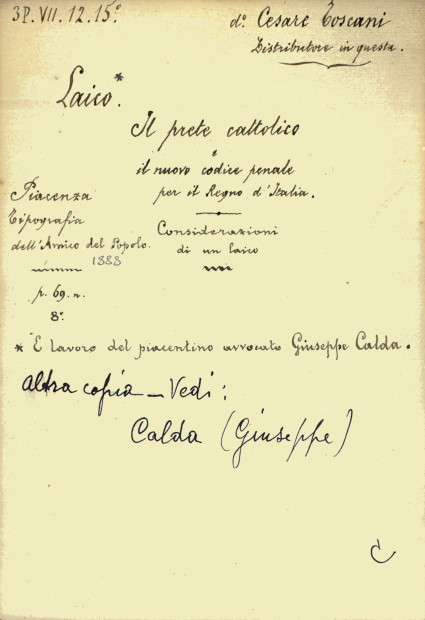 3P. VII. 12. 15°.
d°. Cesare Toscani
Distributore in questa.
Laico*.
Il prete cattolico
e
il nuovo codice penale
per il Regno d'Italia.
Piacenza
Tipografia
dell'Amico del Popolo.
1888
Considerazioni
di un laico
p. 69. n.
8°.
* È lavoro del piacentino avvocato Giuseppe Calda.
altra copia - Vedi:
Calda (Giuseppe)